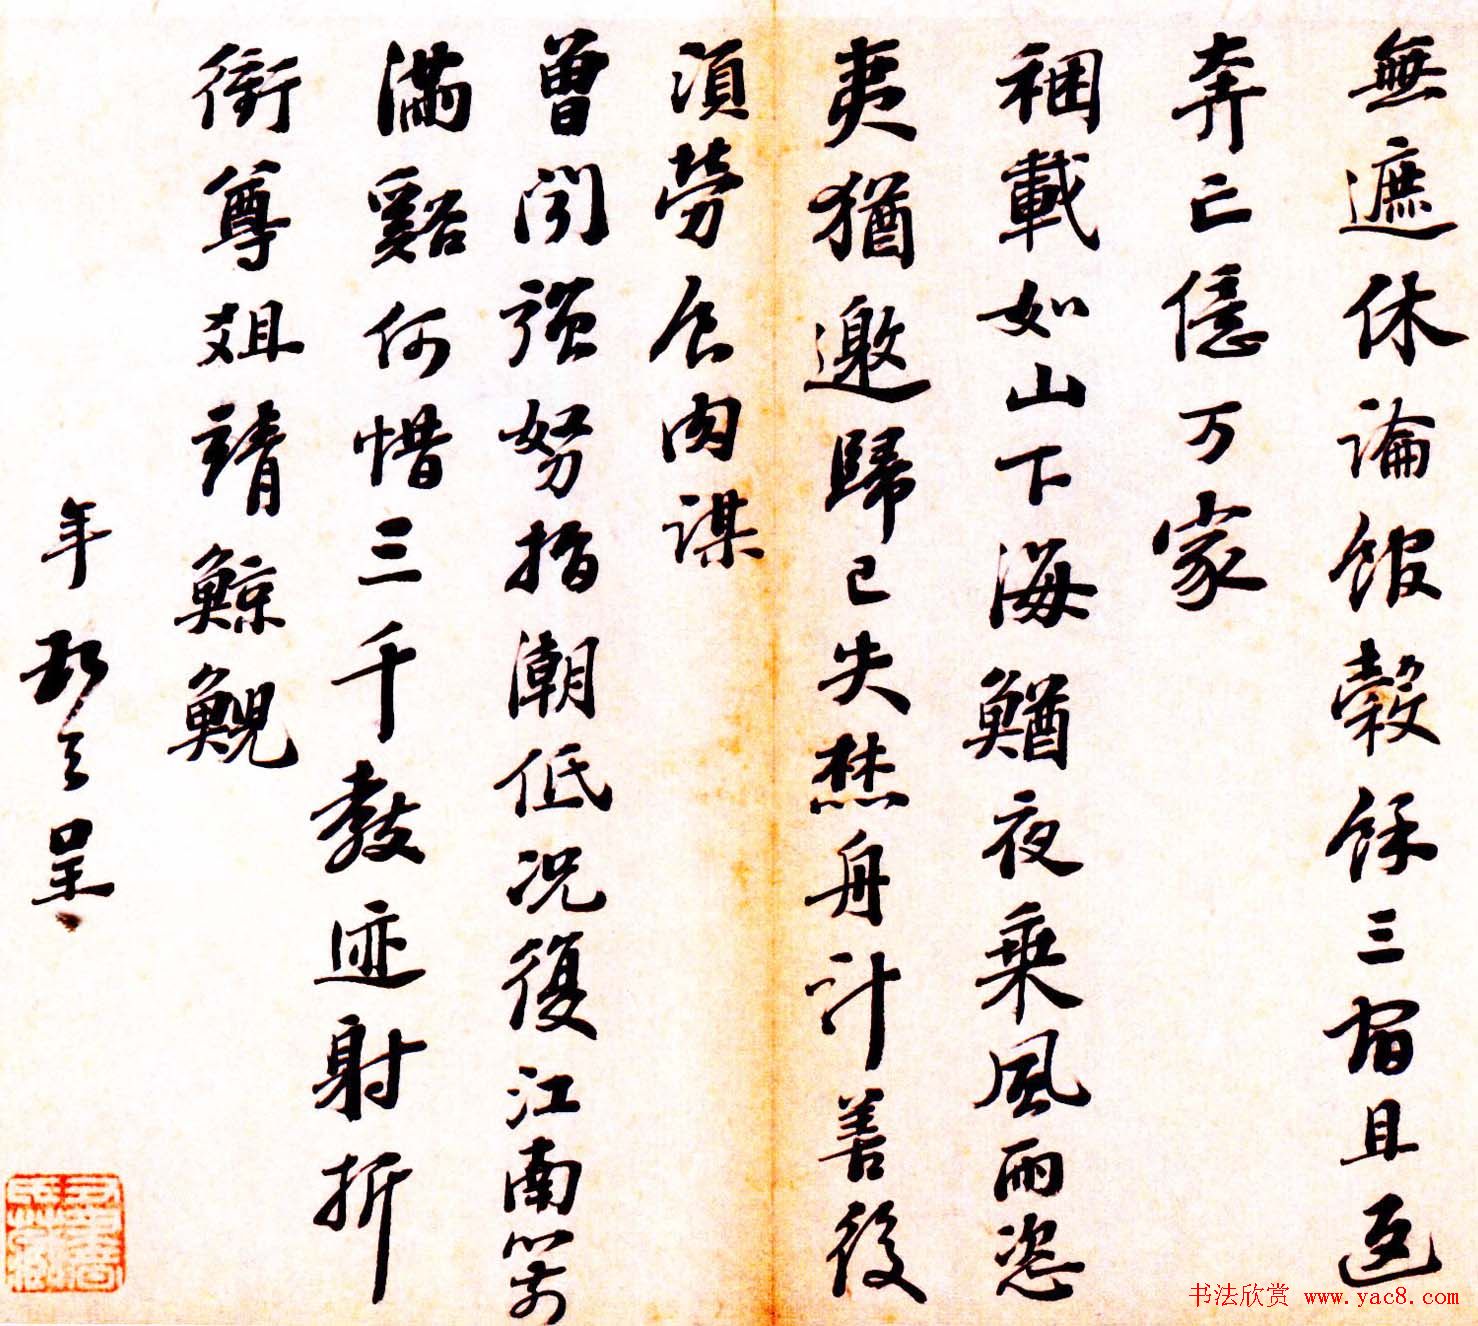 無遮休論館穀餘三宿且返
奔亡億万家
稛載如山下海鰌夜乗風雨恣
夷猶邀歸已失焚舟計善後
須勞食肉謀
曽聞强努指潮低况復江南箭
滿谿何惜三千敎迹射折
衝尊俎靖鯨鯢
年 呈
书法欣赏 www.yac8.com